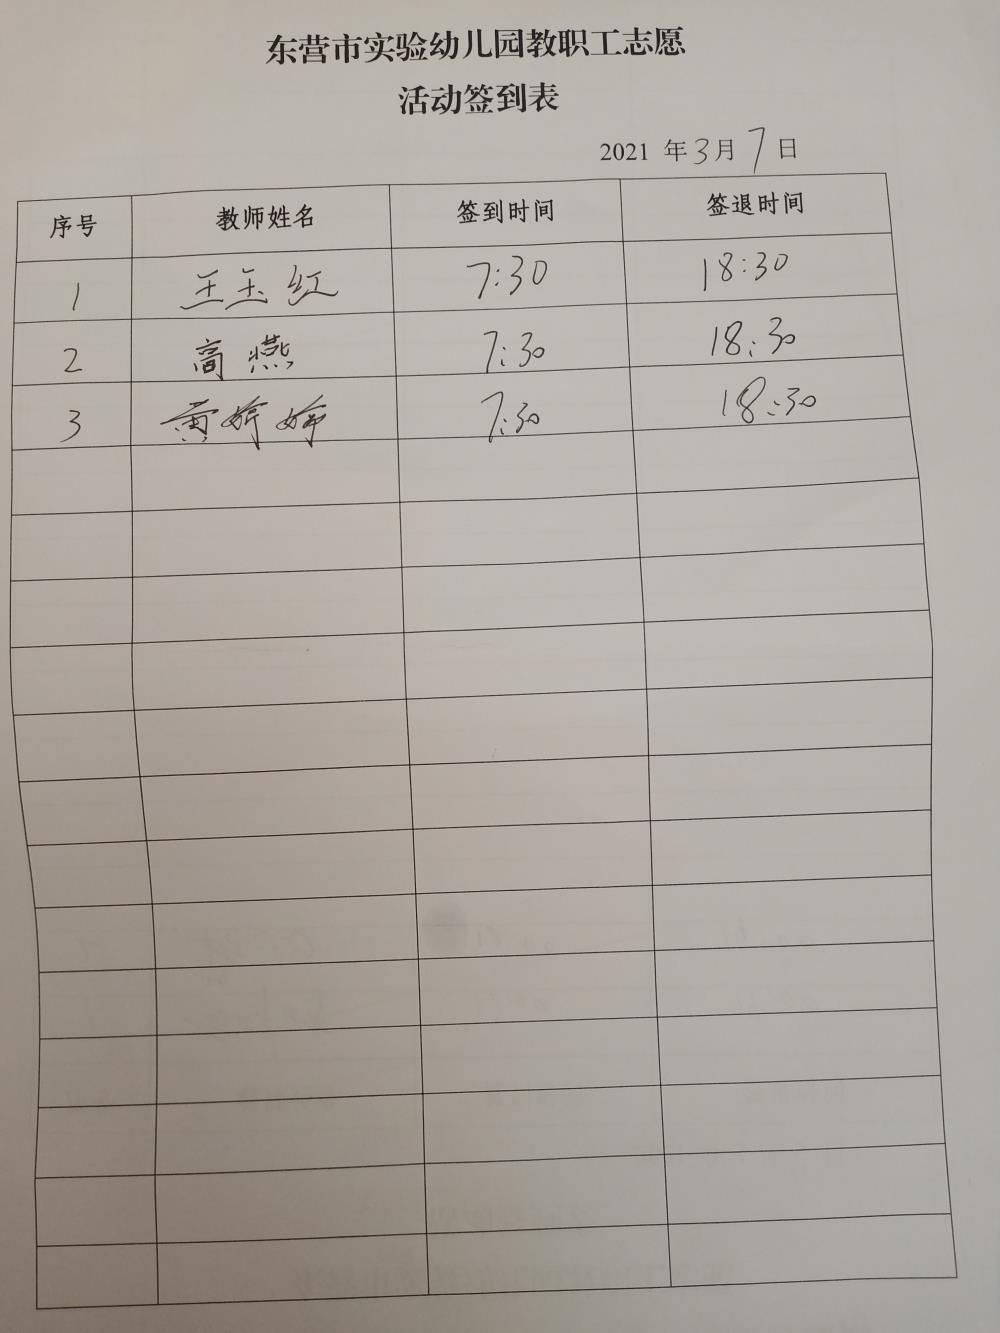 东营市实验幼儿园教职工志愿
活动签到表
2021 年 3月 7 日
序号 教师姓名 签到时间 签退时间
1 王玉红 7:30 18:30
2 高燕 7:30 18:30
3 黄婷婷 7:30 18:30